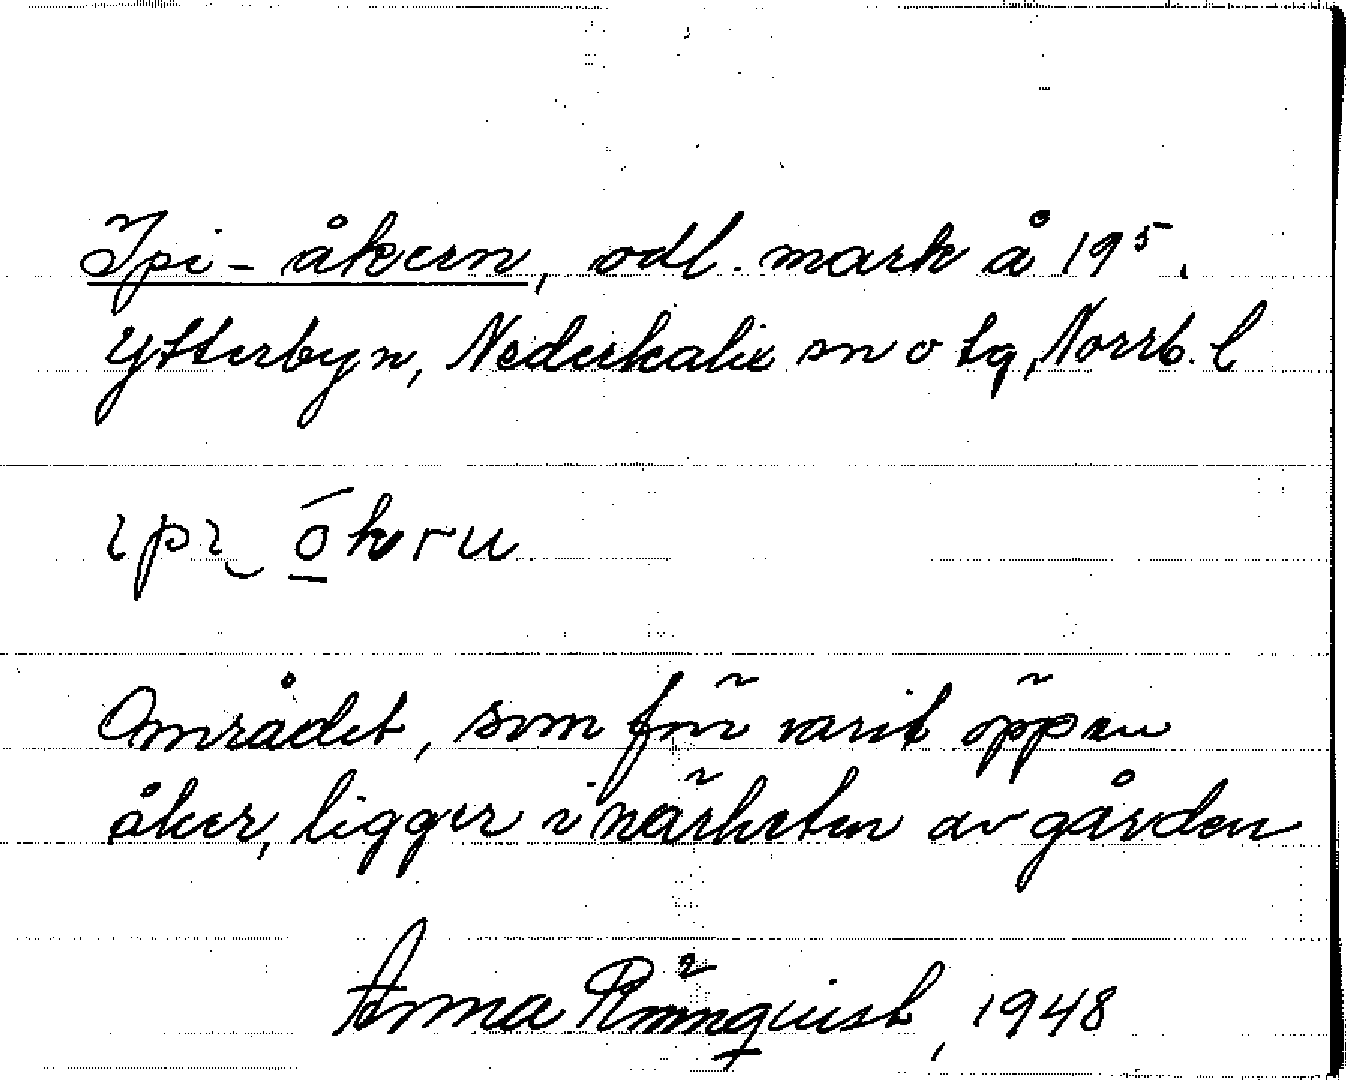 Ipi-åkern, odl. mark å 19⁵.
Ytterbyn, Nederkalix sn o tg, Norrb. l
ıpı‿ ō̲kɵru
Området, som förr varit öppen
åker, ligger i närheten av gården
Anna Rönnqvist, 1948